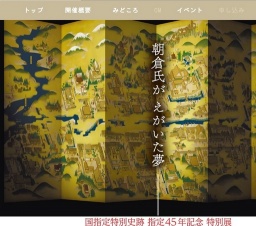 トップ
開催概要
みどころ
イベント
朝倉氏がえがいた夢
国指定特別史跡 指定45年記念 特別展